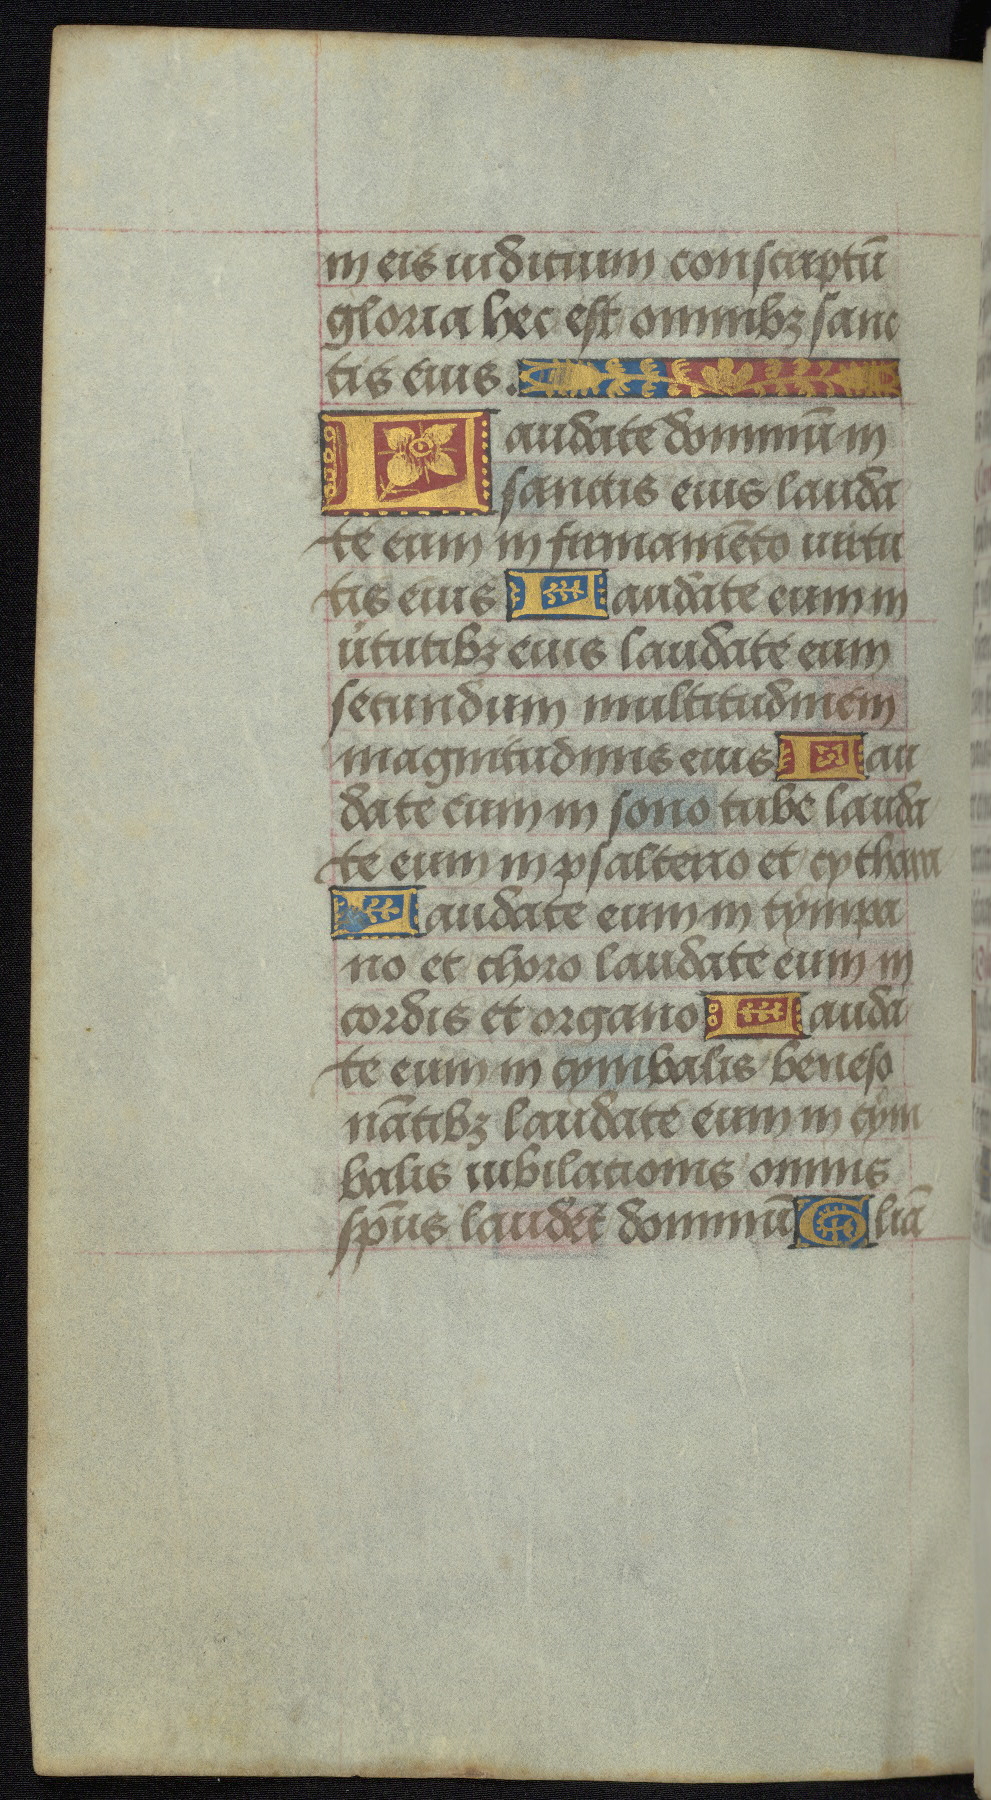 in eis iudicium conscriptū
gloria hec est omnibꝫ sanc
tis eius.
Laudate dominū in
sanctis eius lauda
te eum in firmamēto uirtu
tis eius Laudate eum in
ūtutibꝫ eius laudate eum
secundum multitudinem
magnitudinis eius Lau
date eum in sono tube lauda
te eum in psalterio et cythara
Laudate eum in tympa
no et choro laudate eum in
cordis et organo Lauda
te eum in cymbalis beneso
nātibꝫ laudate eum in cym
balis iubilacionis omnis
sp̄us laudet dominū Gl̄ia